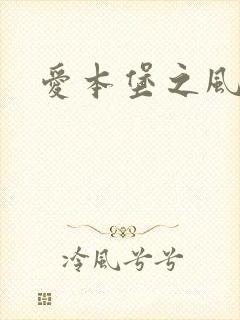 愛本堡之風
冷風兮兮